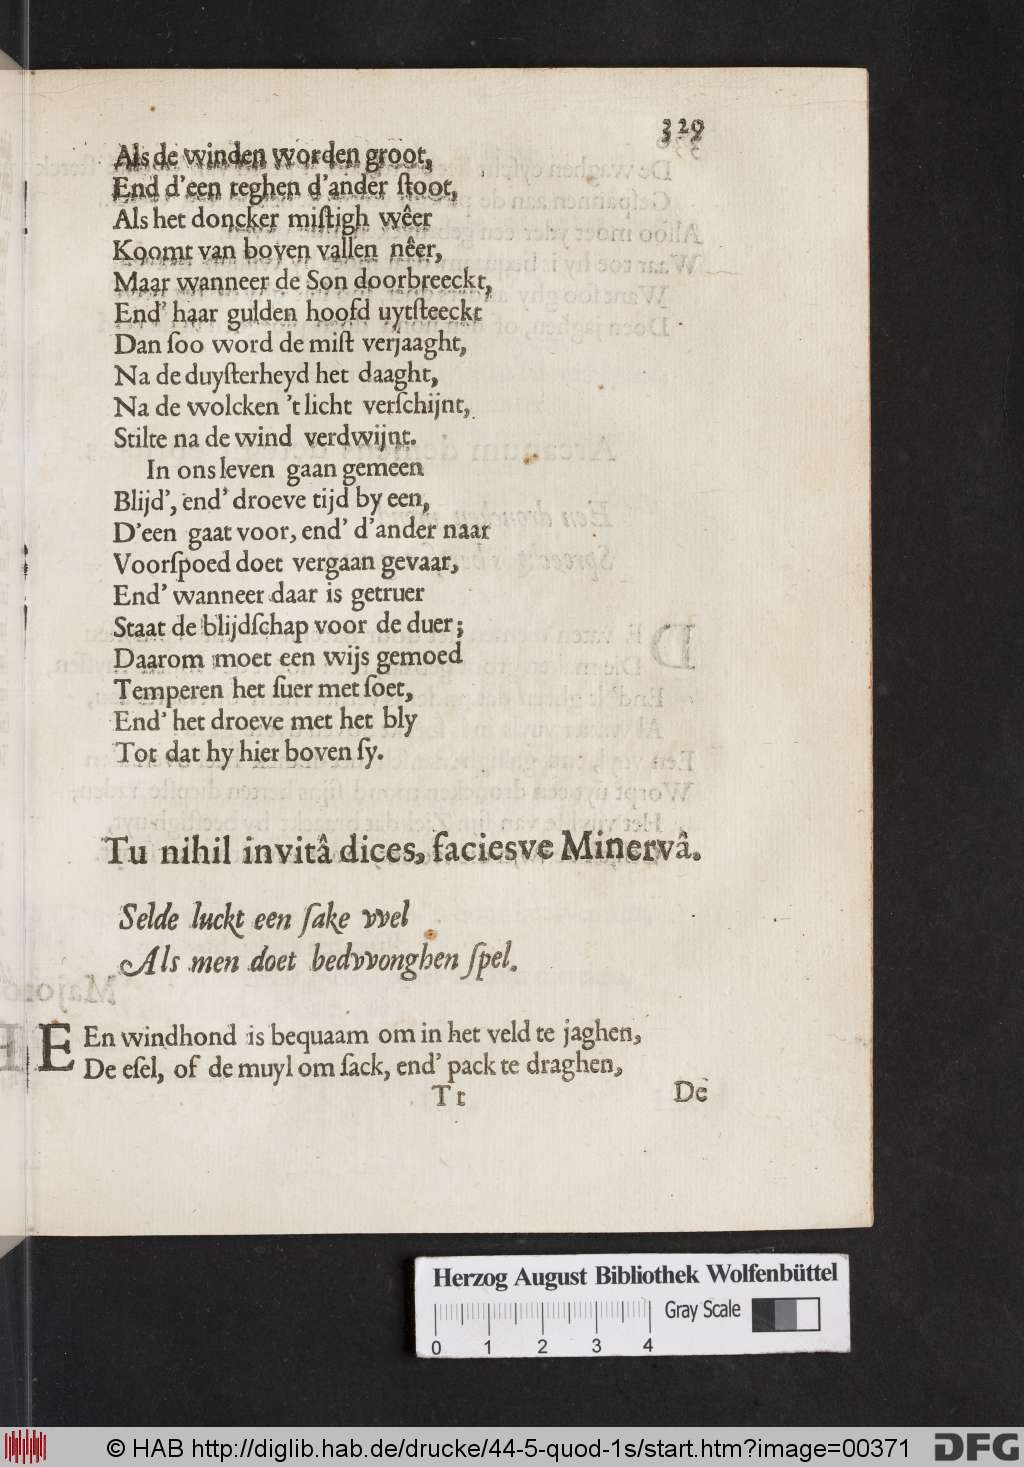 329
Als de winden worden groot,
End d'een teghen d'ander ſtoot,
Als het doncker miſtigh wêer
Koomt van boven vallen nêer,
Maar wanneer de Son doorbreeckt,
End' haar gulden hoofd uytſteeckt
Dan ſoo word de miſt verjaaght,
Na de duyſterheyd het daaght,
Na de wolcken 't licht verſchijnt,
Stilte na de wind verdwijnt.
In ons leven gaan gemeen
Blijd', end' droeve tijd by een,
D'een gaat voor, end' d'ander naar
Voorſpoed doet vergaan gevaar,
End' wanneer daar is getruer
Staat de blijdſchap voor de duer;
Daarom moet een wijs gemoed
Temperen het ſuer met ſoet,
End' het droeve met het bly
Tot dat hy hier boven ſy.
Tu nihil invitâ dices, faciesve Minervâ.
Selde luckt een ſake vvel
Als men doet bedvvonghen ſpel.
EEn windhond is bequaam om in het veld te jaghen,
De eſel, of de muyl om ſack, end' pack te draghen,
Tt De
Herzog August Bibliothek Wolfenbüttel
Gray Scale
0 1 2 3 4
© HAB http://diglib.hab.de/drucke/44-5-quod-1s/start.htm?image=00371
DFG